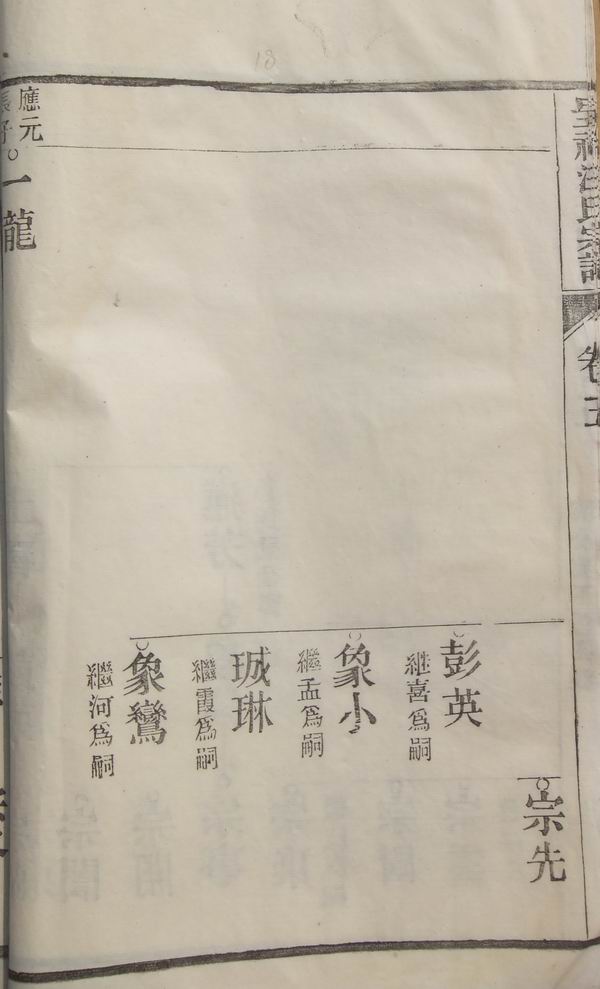 汪氏宗譜
卷五
宗先
彭英
継喜爲嗣
象小
繼孟爲嗣
珹琳
繼霞爲嗣
象鸞
繼河爲嗣
應元
長子
一龍